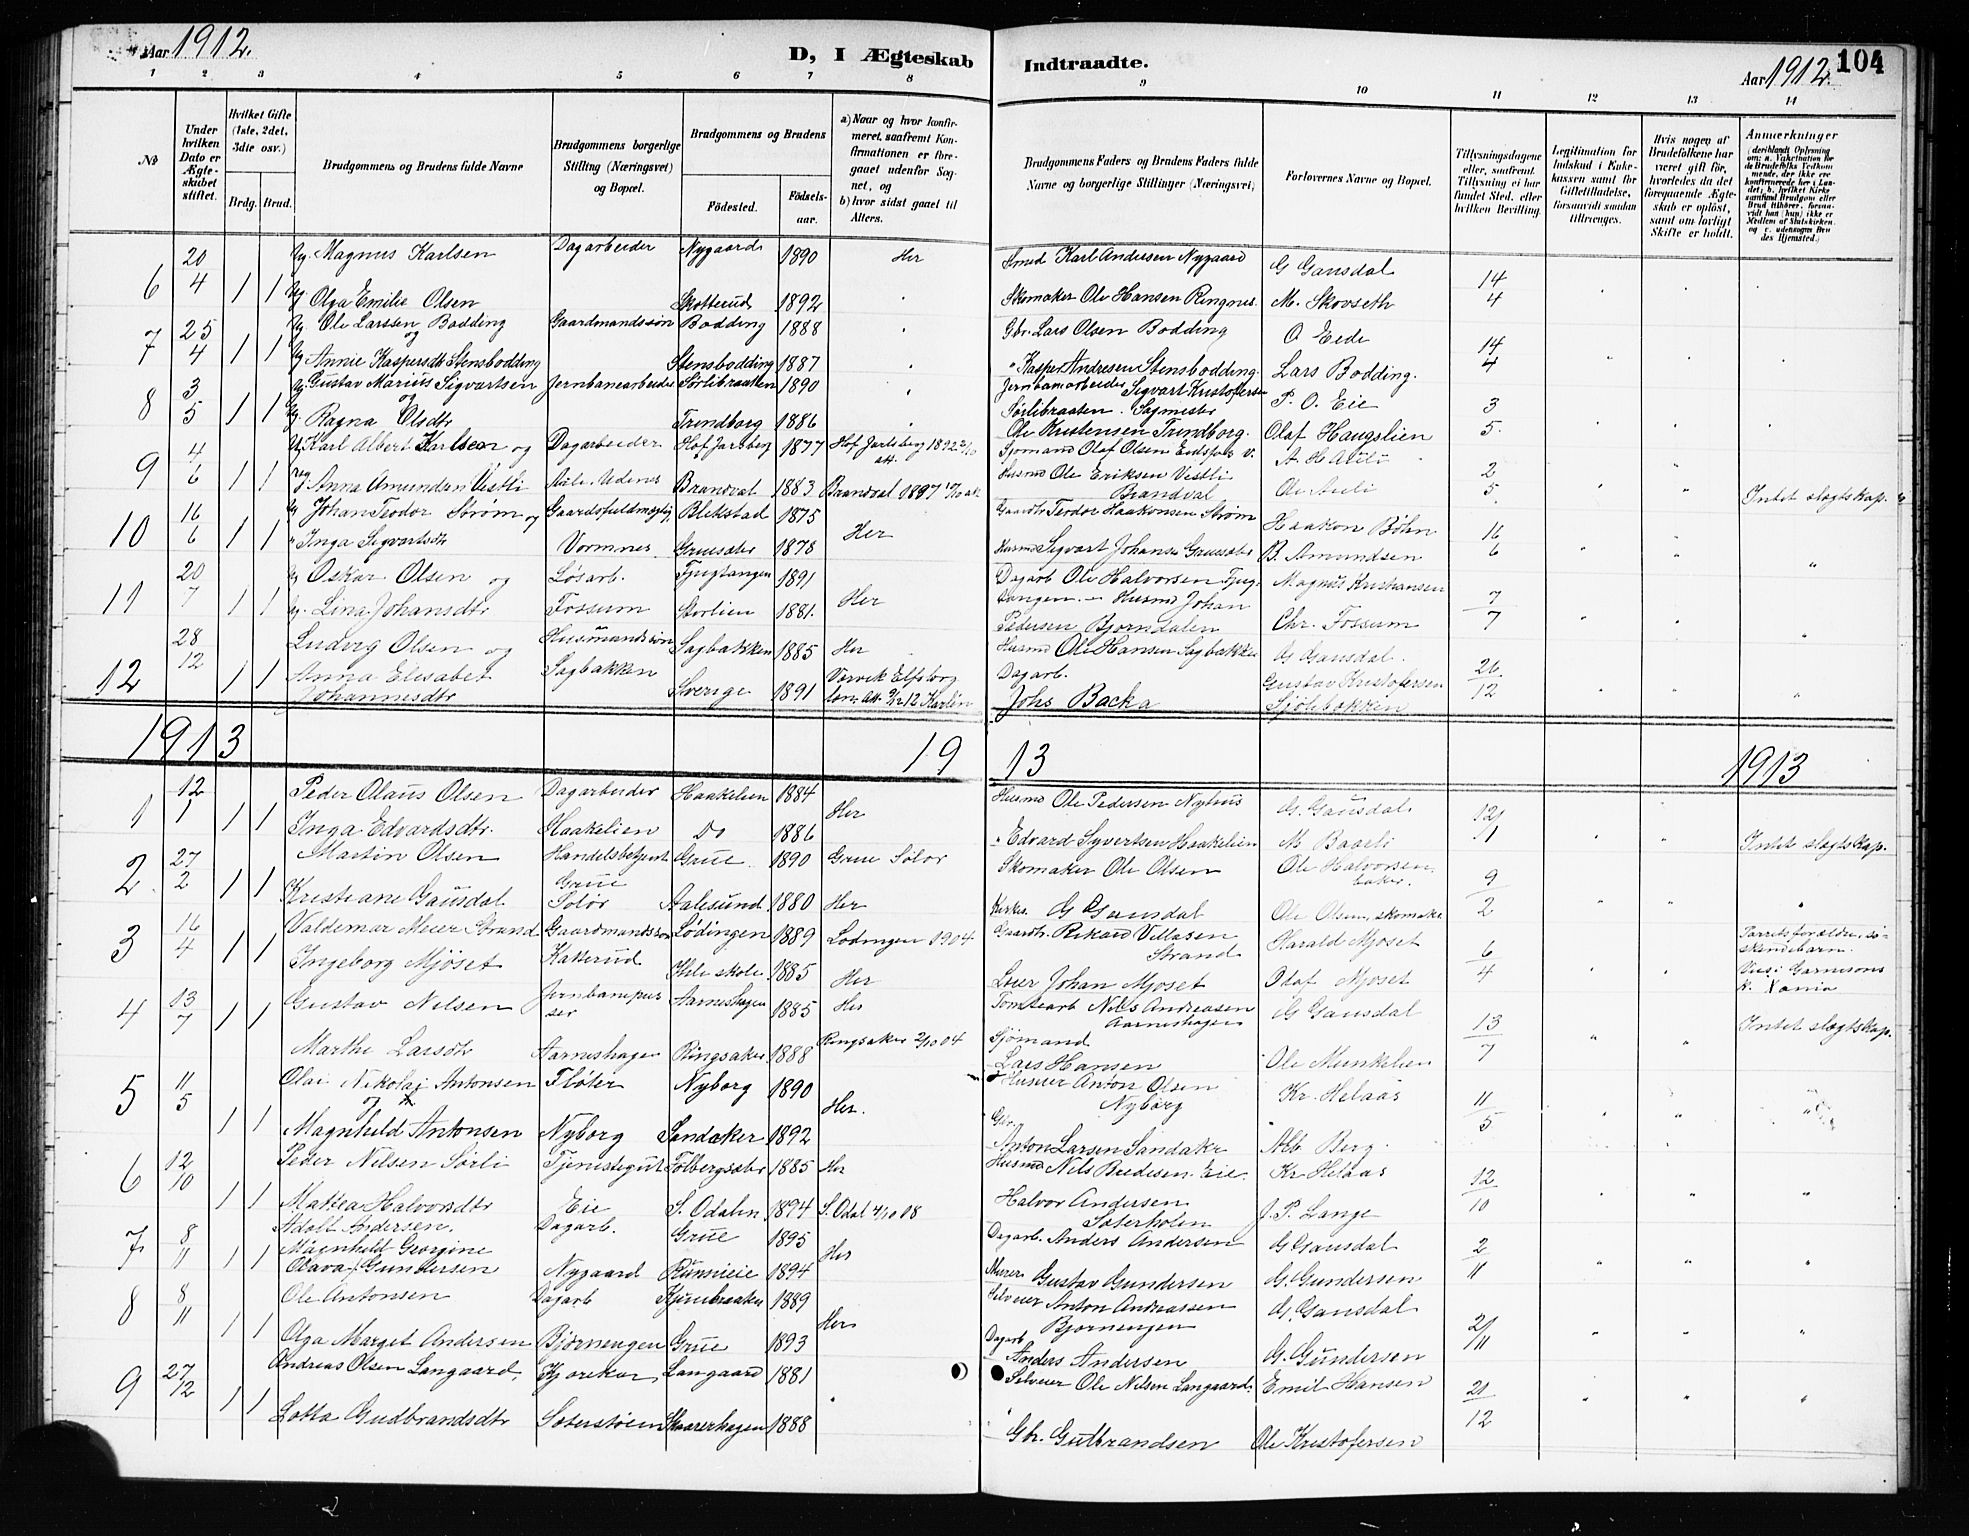 Aar 1912.
D, I Ægteskab Indtraadte.
Aar 1912. 104
1 2 3 4 5 6 7 8 9 10 11 12 13 14
No
Under hvilken Dato er Ægteskabet stiftet.
Hvilket Gifte (1ste, 2det, 3die osv.)
Brdg. Brud.
Brudgommens og Brudens fulde Navne
Brudgommens borgerlige Stilling (Næringsvei) og Bopæl.
Brudgommens og Brudens
Fødested. Fødselsaar.
a) Naar og hvor konfirmeret, saafremt Konfirmationen er foregaaet udenfor Sognet, og
b) hvor sidst gaaet til Alters.
Brudgommens Faders og Brudens Faders fulde Navne og borgerlige Stillinger (Næringsvei)
Forlovernes Navne og Bopæl.
Tillysningsdagene eller, saafremt Tillysning ei har fundet Sted, efter hvilken Bevilling.
Legitimation for Indskud i Enkekassen samt for Giftetilladelse, forsaavidt saadan tiltrænges.
Hvis nogen af Brudefolkene har været gift før, hvorledes da det foregaaende Ægteskab er opløst, samt om lovligt Skifte er holdt.
Anmærkninger
6 20/4 1 1 Ug. Magnus Karlsen Dagarbeider Nygaard 1890 Her Smed Karl Andersen Nygaard G Gausdal 14/4
Ug Olga Emilie Olsen Skotterud 1892 Skomaker Ole Hansen Ringnes. M. Skovseth
7 25/4 1 1 Ug Ole Larssen Bodding Gaardmandssøn Bodding 1888 Gbr. Lars Olsen Bodding O Eede 14/4
og
Ug. Annie Kaspersdtr Stensbodding Stensbodding 1887 " Kasper Andresen Stensbodding. Lars Bodding.
8 3/5 1 1 Ug Gustav Marius Sigvartsen Jernbanearbeider Sørlibraaten 1890 Jernbanarbeider Sigvart Kristofersen P. O. Eie 3/5
og
Ug. Ragna Olsdtr Trindborg 1886 Sørlibraaten. Sagmester
Ole Kristensen Trindborg. Olaf Haugslien
9 4/6 1 1 Karl Albert Karlsen og Dagarbeider Hof Jarlsberg 1877 Hof Jarlsberg 1892 Sjømand Olaf Olsen 2/5
Anna Amundsen Vestli Brandval 1883 Brandval 1897 Husmd Ole Eriksen Vestli
Brandval Intet slegtskap.
10 16/6 1 1 Ug Johan Teodor Strøm og Gaardsfuldmægtig, Blekstad 1875 Her Gaardbr Teodor Haakonsen Strøm Haakon Bøhn 16/6
" Inga Sigvartsdtr Vormnes Gruesæter 1878 Husmd Sigvart Johansen Gruesæter B. Amundsen
11 20/7 1 1 Ug Oskar Olsen og Løsarb. Tjugtangen 1891 Her Dagarb Ole Halvorsen Tjug- Magnus Kristiansen 7/7
Ug. Lina Johansdtr Fossum Storlien 1881. tangen - Husmd Johan
Pedersen Bjørndalen Chr. Fossum
12 28/12 1 1 Ludvig Olsen og Husmandssøn Sagbakken 1885 Her Husmd Ole Hansen Sagbakken G Gausdal. 26/12
Anna Elisabet Sagbakken Dagarb. Gustav Kristofersen
Johannesdtr Sverige 1891 Johs Backa Sjølibakken
1913 19 13 1913
1 12/1 1 1 Peder Olaus Olsen Dagarbeider Haakelien 1884 Her Husmd Ole Pedersen Nyhus G. Gausdal 12/1
Inga Edvardsdtr. Haakelien Do 1886 " Edvard Syvertsen Haakelien M Baarli Intet slegtskap.
2 27/2 1 1 Martin Olsen Handelsbetjent Grue 1890 Grue Solør Skomaker Ole Olsen Ole Halvorsen, 9/2
Grue baker.
Kristiane Gausdal Solør Aalesund 1880 Her Kirkes. G Gausdal Ole Olsen, skomaker
3 16/4 1 1 Valdemar Meier Strand Gaardmandssøn Lødingen 1889 Lødingen 1904 Gaardbr. Rikard Villasen Harald Mjøset 6/4
Strand
Ingeborg Mjöset Kakerud skole 1885 Her Lærer Johan Mjøset Olaf Mjøset
Parrets forældre, søskendebarn.
Viet i Garnisons k. Xania
4 13/7 1 1 Gustav Nilsen Jernbanepusser Aarneshagen 1885 Her Tomtearb Nils Andreasen G Gausdal 13/7
Aarneshagen Intet slegtskap.
Marthe Larsdtr Aarneshagen Ringsaker 1888 Ringsaker 2/10 04 Sjømand
Lars Hansen Ole Munkelien
5 11/5 1 1 Olai Nikolai Antonsen Fløter Nyborg 1890 Her. Husmd Anton Olsen Kr. Helaas 11/5
og Nyborg
Magnhild Antonsen Nyborg Sandaker 1892 Gbr.
Anton Larsen Sandaker Alb Berg.
6 12/10 1 1 Peder Nilsen Sørli Tjenestegut Tolbergsæter 1885 Her Husmd Nils Bredesen. Eie Kr Helaas 12/10
Mattea Halvorsdtr Eie S. Odalen 1894 S. Odal 4/10 08 Halvor Andersen
Soterholen J. P. Lange
7 8/11 1 1 Adolf Andersen. Dagarb. Grue 1895 Her Dagarb. Anders Andersen G Gausdal 2/11
Magnhild Georgine
Olava Gundersen Nygaard 1894 Murer Gustav Gundersen G. Gundersen
8 8/11 1 1 Ole Antonsen Dagarb 1889 Her Selveier Anton Andreassen G. Gausdal 2/11
Bjørnengen
Olga Marget Andersen Bjørnengen Grue 1893 Dagarb
Anders Andersen G. Gundersen
9 27/12 1 1 Andreas Olsen Langaard, Langaard 1881 " Selveier Ole Nilsen Langaard, Emil Hansen 21/12
Lotta Gudbrandsdtr Soterstøen Skaarerhagen 1888 Gbr. Gulbrandsen Ole Kristofersen